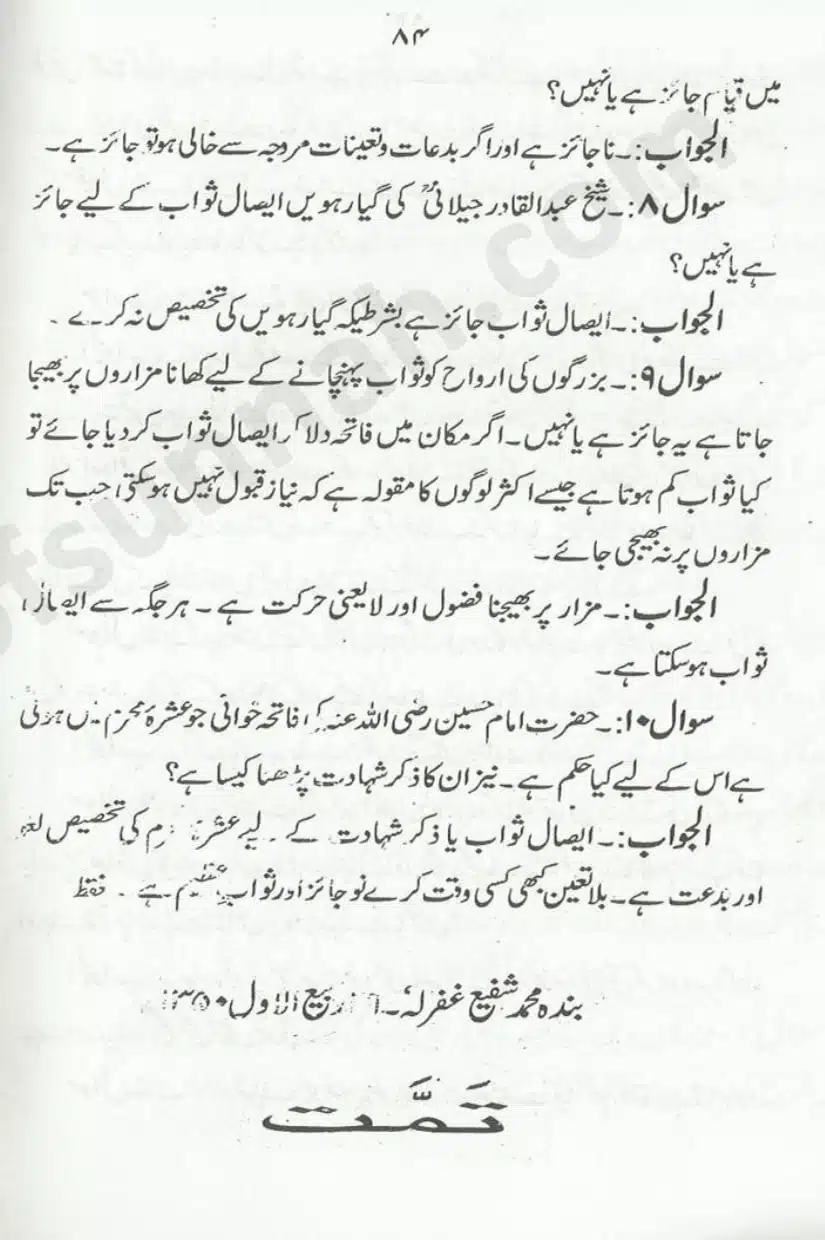 ۸۴
میں قیام جائز ہے یا نہیں؟
الجواب:۔ ناجائز ہے اور اگر بدعات و تعینات مروجہ سے خالی ہو تو جائز ہے۔
سوال ۸:۔ شیخ عبدالقادر جیلانیؒ کی گیارہویں ایصال ثواب کے لیے جائز
ہے یا نہیں؟
الجواب:۔ ایصال ثواب جائز ہے بشرطیکہ گیارہویں کی تخصیص نہ کرے۔
سوال ۹:۔ بزرگوں کی ارواح کو ثواب پہنچانے کے لیے کھانا مزاروں پر بھیجا
جاتا ہے یہ جائز ہے یا نہیں۔ اگر مکان میں فاتحہ دلا کر ایصال ثواب کر دیا جائے تو
کیا ثواب کم ہوتا ہے جیسے اکثر لوگوں کا مقولہ ہے کہ نیاز قبول نہیں ہو سکتی، جب تک
مزاروں پر نہ بھیجی جائے۔
الجواب:۔ مزار پر بھیجنا فضول اور لایعنی حرکت ہے۔ ہر جگہ سے ایصال
ثواب ہو سکتا ہے۔
سوال ۱۰:۔ حضرت امام حسین رضی اللہ عنہ کی فاتحہ خوانی جو عشرۂ محرم میں ہوتی
ہے اس کے لیے کیا حکم ہے۔ نیز ان کا ذکر شہادت پڑھنا کیسا ہے؟
الجواب:۔ ایصال ثواب یا ذکر شہادت کے لیے عشرۂ کی تخصیص لغو
اور بدعت ہے۔ بلا تعین کبھی کسی وقت کرے تو جائز اور ثواب عظیم ہے۔ فقط
بندہ محمد شفیع غفرلہٗ۔ ربیع الاول ۱۳۵۰
تَمَّت
ofsunnah.com